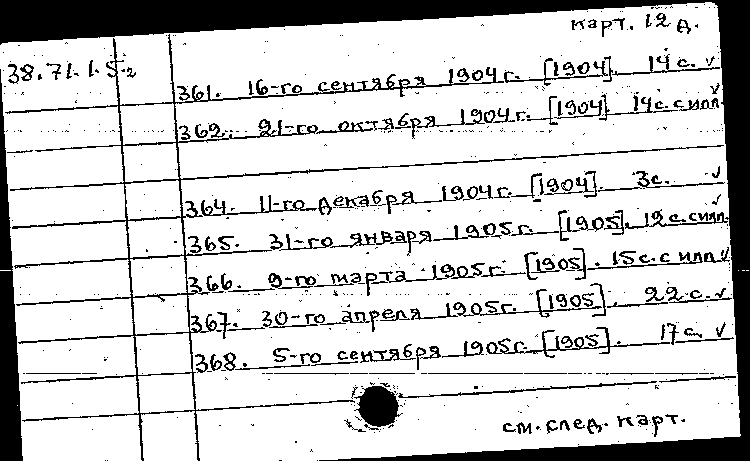 карт. 12 д.
38.71.1.5-2
361. 16-го сентября 1904 г. [1904]. 14 с. ✓
362. 21-го октября 1904 г. [1904] 14 с. с илл. ✓
364. 11-го декабря 1904 г. [1904]. 3 с. ✓
365. 31-го января 1905 г. [1905]. 12 с. с илл. ✓
366. 9-го марта 1905 г. [1905]. 15 с. с илл. ✓
367. 30-го апреля 1905 г. [1905]. 22 с. ✓
368. 5-го сентября 1905 г. [1905]. 17 с. ✓
см. след. карт.